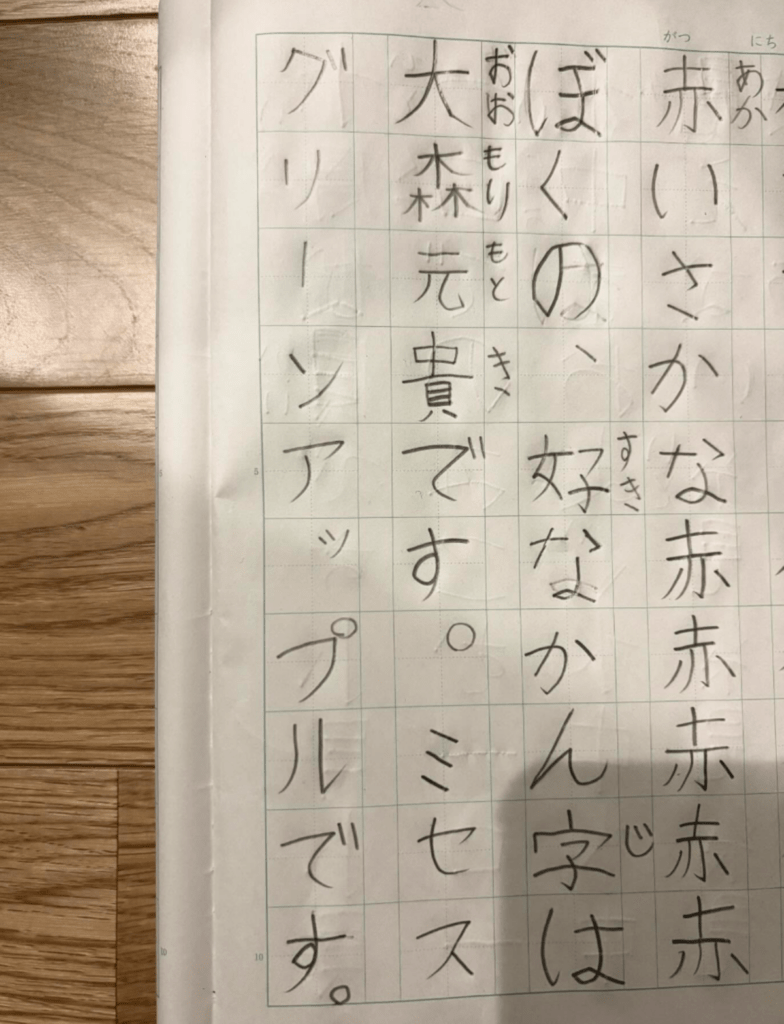 がつ
にち
あか
赤いさかな赤赤赤赤赤
すき
じ
ぼくの、好なかん字は
おおもりもとき
大森元貴です。ミセス
グリーンアップルです。
5
10